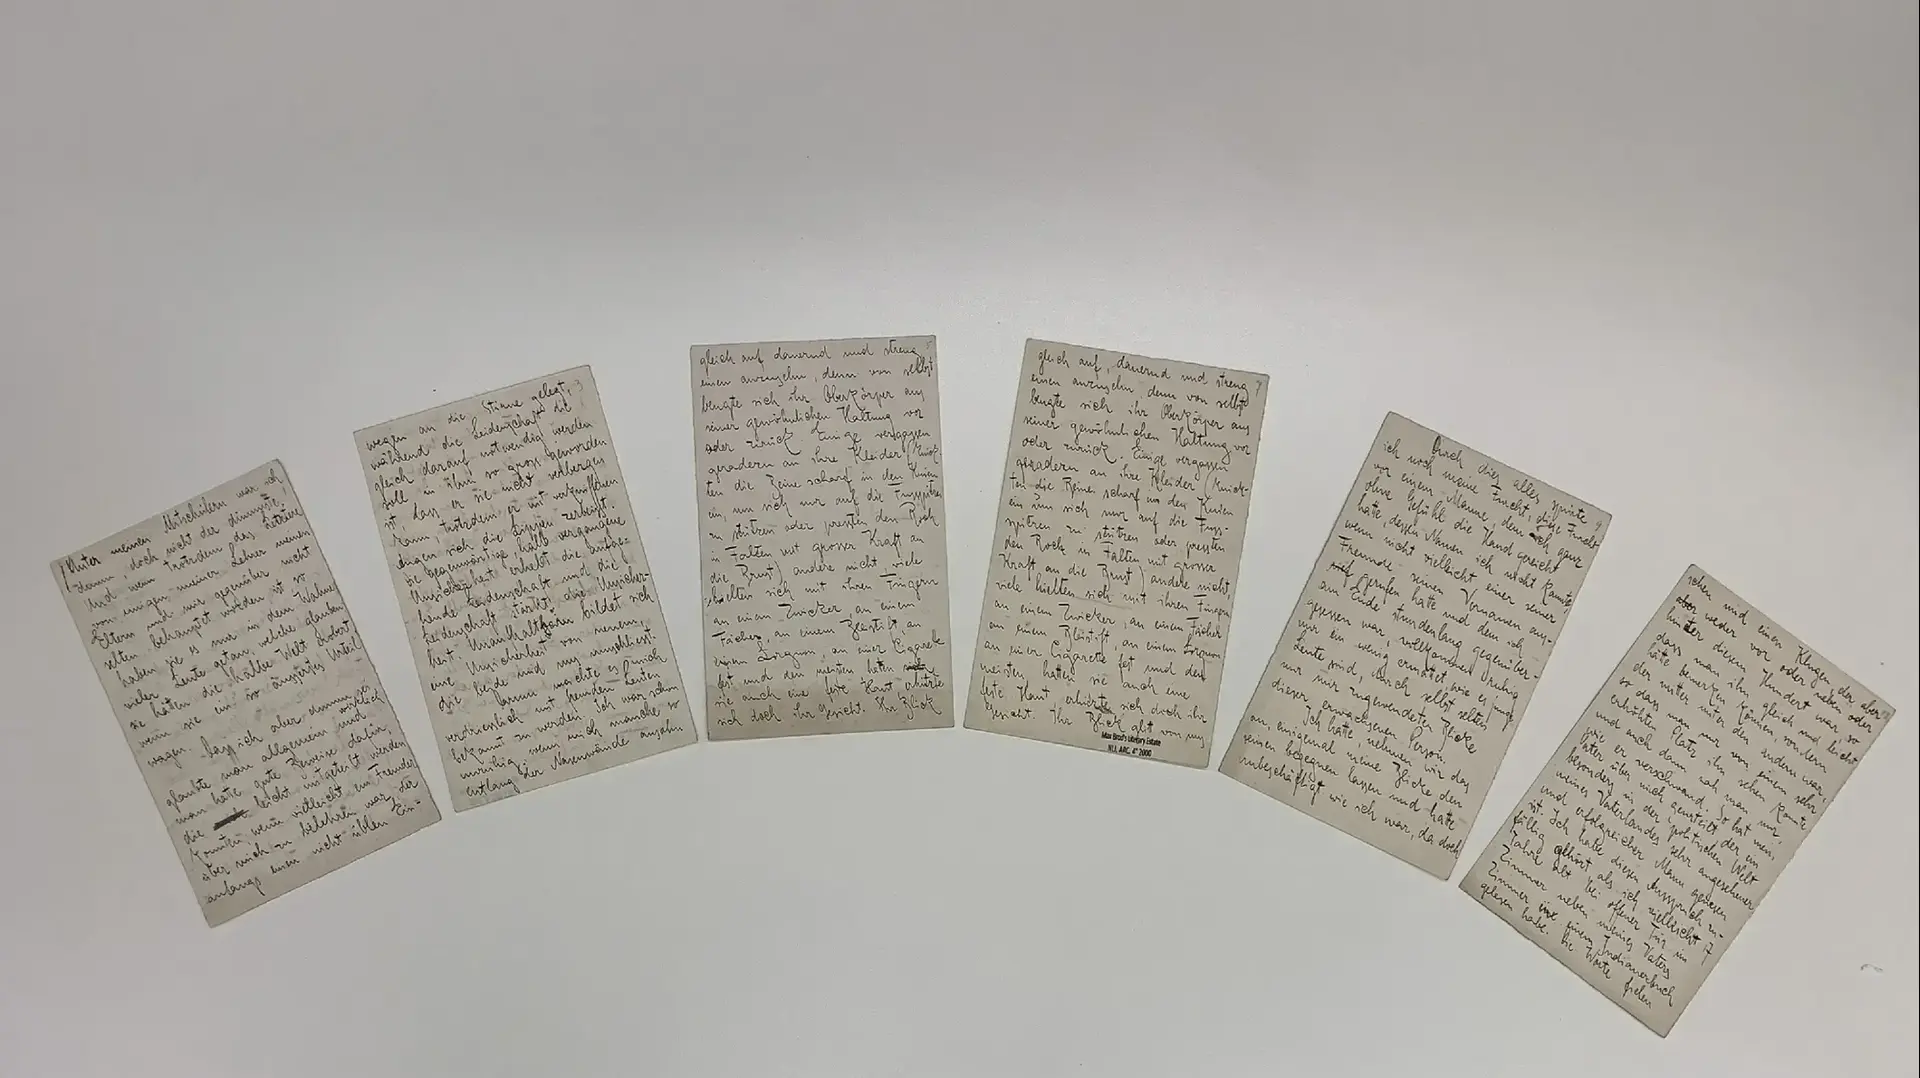 Unter meinen Mitschülern war ich
dumm, doch nicht der dümmste,
Und wenn trotzdem das letztere
von einigen meiner Lehrer meinen
Eltern und mir gegenüber nicht
selten behauptet worden ist, so
haben sie es nur in dem Wahne
vieler Leute getan, welche glauben
sie hätten die halbe Welt erobert
wenn sie ein so äusserstes Urteil
wagen.
Dass ich aber dumm sei
glaubte man allgemein und wirklich
man hatte gute Beweise dafür,
die leicht mitgeteilt werden
konnten, wenn vielleicht ein Fremder
über mich zu belehren war, der
anfangs einen nicht üblen Ein-
3
wegen an die Stirne gelegt,
während die Leidenschaft die
gleich darauf notwendig werden
soll in ihm so gross geworden
ist, dass er sie nicht verbergen
kann, trotzdem er mit
sich die Lippen zerbeisst.
Die gegenwärtige, halb vergangene
Unsicherheit erhebt die
hende Leidenschaft und die
Leidenschaft stärkt die Unsicher-
heit. Unaufhaltbar bildet sich
eine Unsicherheit von neuem,
die beide und uns umschliesst.
Darum machte es mich
verdriesslich mit fremden Leuten
bekannt zu werden. Ich war schon
unruhig, wenn mich manche so
entlang der Nasenwände ansahn
5
gleich auf dauernd und streng
einen anzusehn, denn von selbst
beugte sich ihr Oberkörper aus
seiner gewöhnlichen Haltung vor
oder zurück. Einige vergassen
geradezu an ihre Kleider (knick-
ten die Beine scharf in den Knien
ein, um sich nur auf die Fusspitzen
zu stützen oder pressten den Rock
in Falten mit grosser Kraft an
die Brust) andere nicht, viele
hielten sich mit ihren Fingern
an einem Zwicker, an einem
Fächer, an einem Bleistift, an
einem Lorgnon, an einer Cigarette
fest und den meisten, hatten
sie auch eine feste Haut erhitzte
sich doch ihr Gesicht. Ihr Blick
7
gleich auf, dauernd und streng
einen anzusehn, denn von selbst
beugte sich ihr Oberkörper aus
seiner gewöhnlichen Haltung vor
oder zurück. Einige vergassen
geradezu an ihre Kleider (knick-
ten die Beine scharf in den Knien
ein um sich nur auf die Fuss-
spitzen zu stützen oder pressten
den Rock in Falten mit grosser
Kraft an die Brust) andere nicht,
viele hielten sich mit ihren Fingern
an einem Zwicker, an einem Fächer
an einem Bleistift, an einem Lorgnon
an einer Cigarette fest und den
meisten, hatten sie auch eine
feste Haut erhitzte sich doch ihr
Gesicht. Ihr Blick glt von uns
Max Brod's Literary Estate
NLI, ARC. 4° 2000
9
Durch dies alles spürte
ich noch meine Furcht, diese Furcht
vor einem Manne, dem ich ganz
ohne Gefühl die Hand gereicht
hatte, dessen Namen ich nicht kannte,
wenn nicht vielleicht einer seiner
Freunde seinen Vornamen aus-
gerufen hatte und dem ich
am Ende stundenlang gegenüber-
gesessen war, vollkommen ruhig
nur ein wenig ermattet, wie es junge
Leute sind, durch selbst selten
nur mir zugewendeten Blicke
dieser erwachsenen Person.
Ich hatte, nehmen wir das
an, einigemal meine Blicke den
seinen begegnen lassen und hatte
unbeschäftigt wie ich war, da doch
schen und einem Klugen der aber
weder vor oder neben oder
hinter diesem Hundert war, so
dass man ihn gleich und leicht
hätte bemerken können, sondern
der mitten unter den andern war,
so dass man nur von einem sehr
erhöhten Platz ihn sehen konnte
und auch dann nah man nur,
wie er verschwand. So hat mein
Vater über mich geurteilt, der ein
besonders in der politischen Welt
meines Vaterlandes sehr angesehener
und erfolgreicher Mann gewesen
ist. Ich hatte diesen Ausspruch zu-
fällig gehört, als ich vielleicht 17
Jahre alt bei offener Tür im
Zimmer neben meines Vaters
Zimmer in einem Indianerbuch
gelesen habe. Die Worte fielen